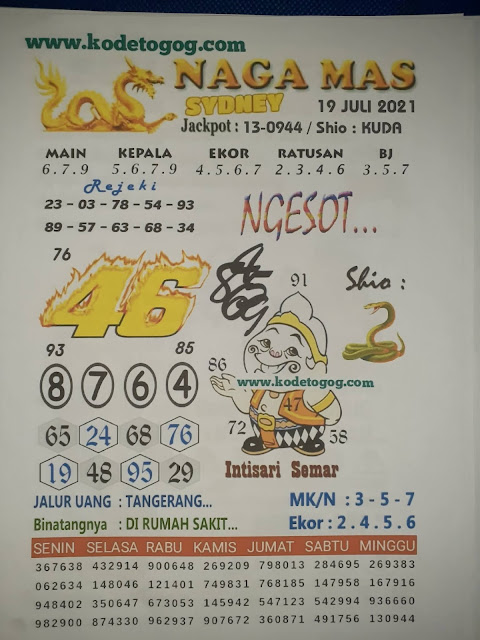 www.kodetogog.com
NAGA MAS
SYDNEY 19 JULI 2021
Jackpot : 13-0944 / Shio : KUDA
MAIN KEPALA EKOR RATUSAN BJ
6.7.9 5.6.7.9 4.5.6.7 2.3.4.6 3.5.7
Rejeki
23 - 03 - 78 - 54 - 93
89 - 57 - 63 - 68 - 34
NGESOT...
76
46
91
Shio :
93 85
8 7 6 4
86
www.kodetogog.com
47
72 58
65 24 68 76
19 48 95 29
Intisari Semar
JALUR UANG : TANGERANG...
Binatangnya : DI RUMAH SAKIT...
MK/N : 3 - 5 - 7
Ekor : 2 . 4 . 5 . 6
SENIN SELASA RABU KAMIS JUMAT SABTU MINGGU
367638 432914 900648 269209 798013 284695 269383
062634 148046 121401 749831 768185 147958 167916
948402 350647 673053 145942 547123 542994 936660
982900 874330 962937 907672 360871 491756 130944